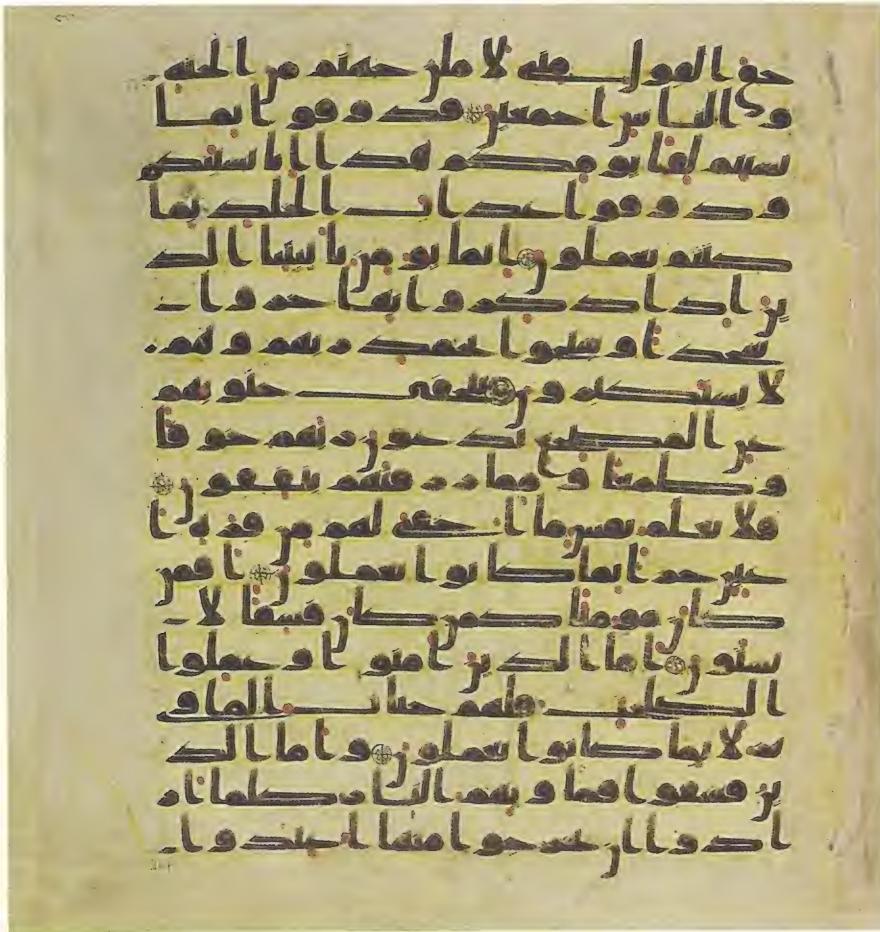 حق القول مني لاملن جهنم من الجنة
والناس اجمعين فذوقوا بما
نسيتم لقا يومكم هذا انا نسينكم
وذوقوا عذاب الخلد بما
كنتم تعملون انما يومن باييتنا الذ
ين اذا ذكروا بها خروا
سجدا وسبحوا بحمد ربهم وهم
لا يستكبرون تتجفى جنوبهم
عن المضجع يدعون ربهم خوفا
وطمعا ومما رزقنهم ينفقون
فلا تعلم نفس ما اخفي لهم من قرة ا
عين جزا بما كانوا يعملون افمن
كان مومنا كمن كان فسقا لا
يستون اما الذين امنوا وعملوا
الصلحت فلهم جنات الماو
ى نزلا بما كانوا يعملون واما الذ
ين فسقوا فماويهم النار كلما ار
ادوا ان يخرجوا منها اعيدوا